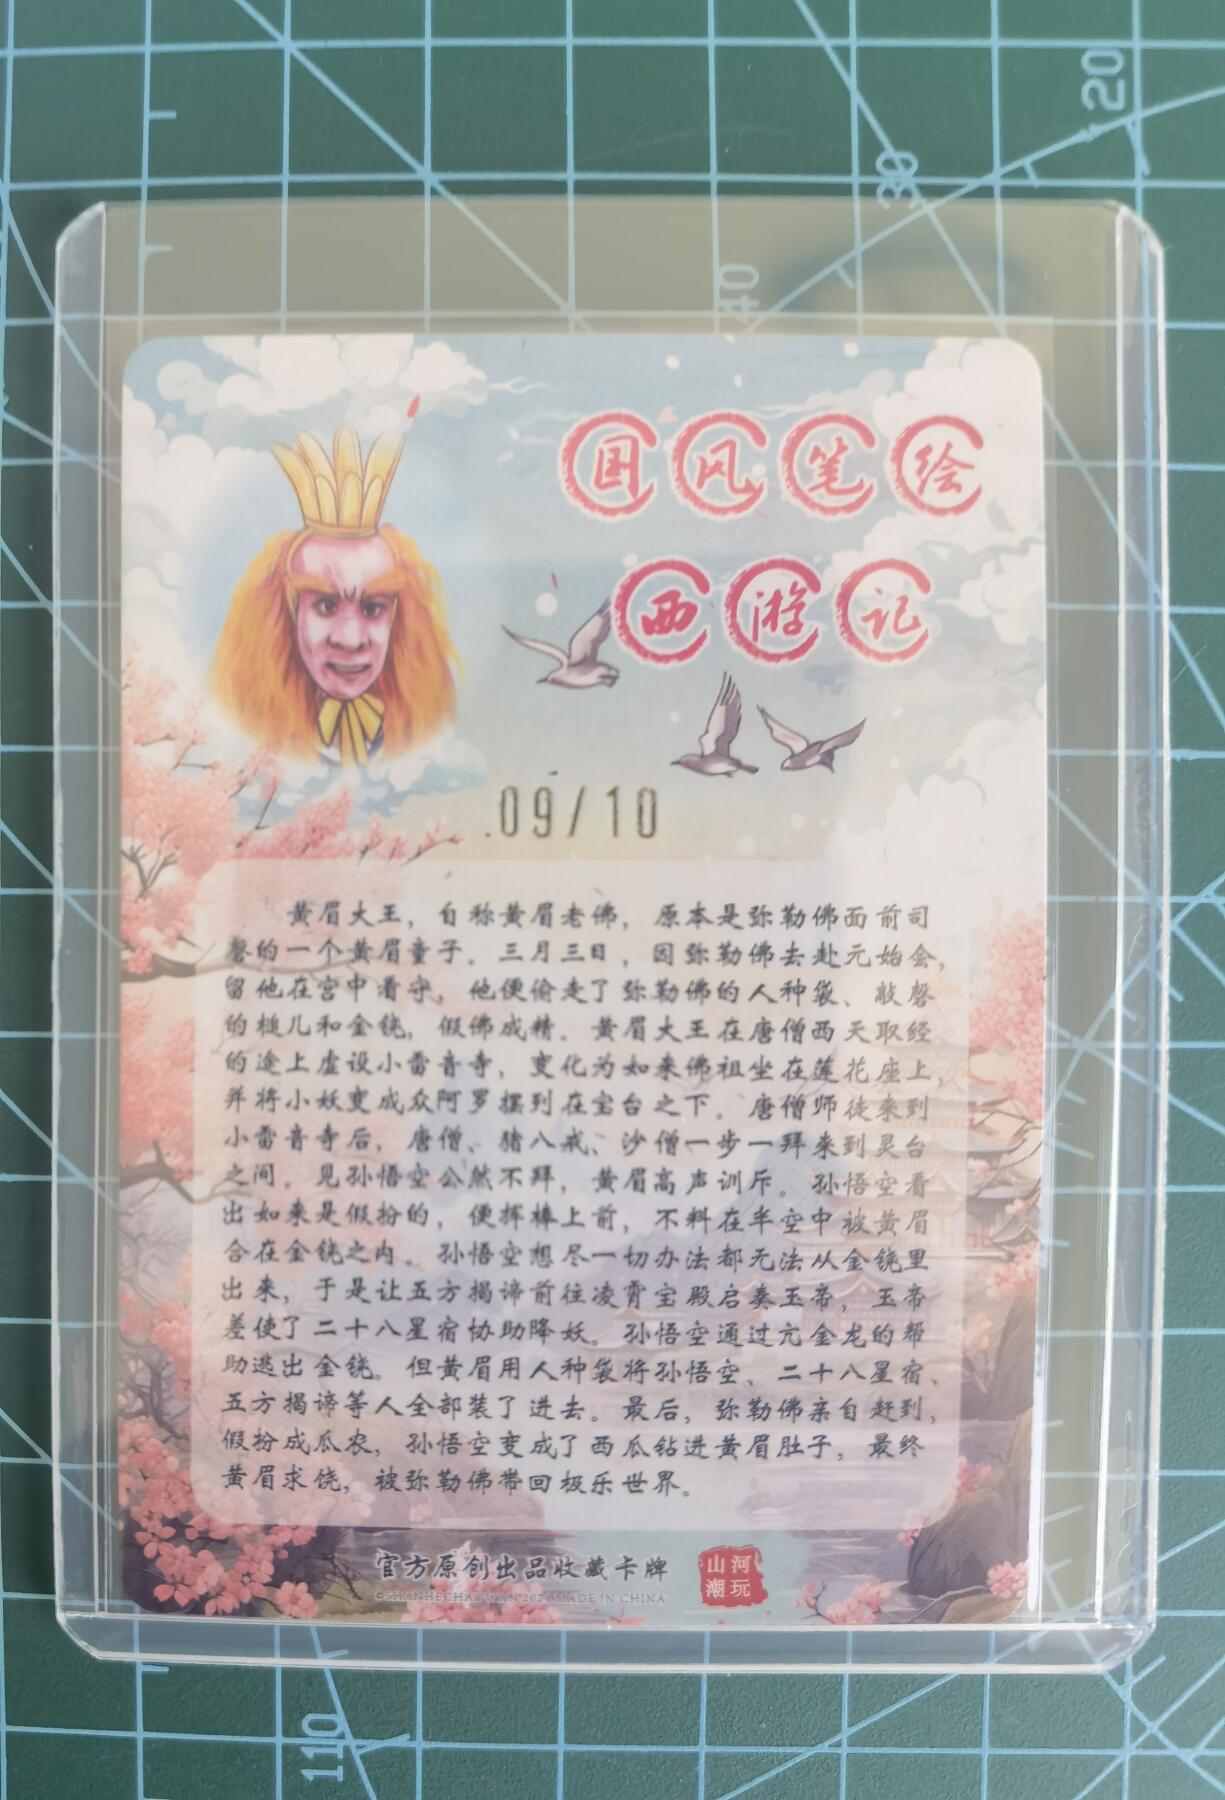 20
30
40
国风笔绘
西游记
.09/10
黄眉大王，自称黄眉老佛，原本是弥勒佛面前司
磬的一个黄眉童子。三月三日，因弥勒佛去赴元始会，
留他在宫中看守，他便偷走了弥勒佛的人种袋、敲磬
的槌儿和金铙，假佛成精。黄眉大王在唐僧西天取经
的途上虚设小雷音寺，变化为如来佛祖坐在莲花座上，
并将小妖变成众阿罗摆到在宝台之下。唐僧师徒来到
小雷音寺后，唐僧、猪八戒、沙僧一步一拜来到灵台
之间。见孙悟空公然不拜，黄眉高声训斥。孙悟空看
出如来是假扮的，便挥棒上前，不料在半空中被黄眉
合在金铙之内。孙悟空想尽一切办法都无法从金铙里
出来，于是让五方揭谛前往凌霄宝殿启奏玉帝，玉帝
差使了二十八星宿协助降妖。孙悟空通过亢金龙的帮
助逃出金铙。但黄眉用人种袋将孙悟空、二十八星宿、
五方揭谛等人全部装了进去。最后，弥勒佛亲自赶到，
假扮成瓜农，孙悟空变成了西瓜钻进黄眉肚子，最终
黄眉求饶，被弥勒佛带回极乐世界。
官方原创出品收藏卡牌
山河
潮玩
MADE IN CHINA
110